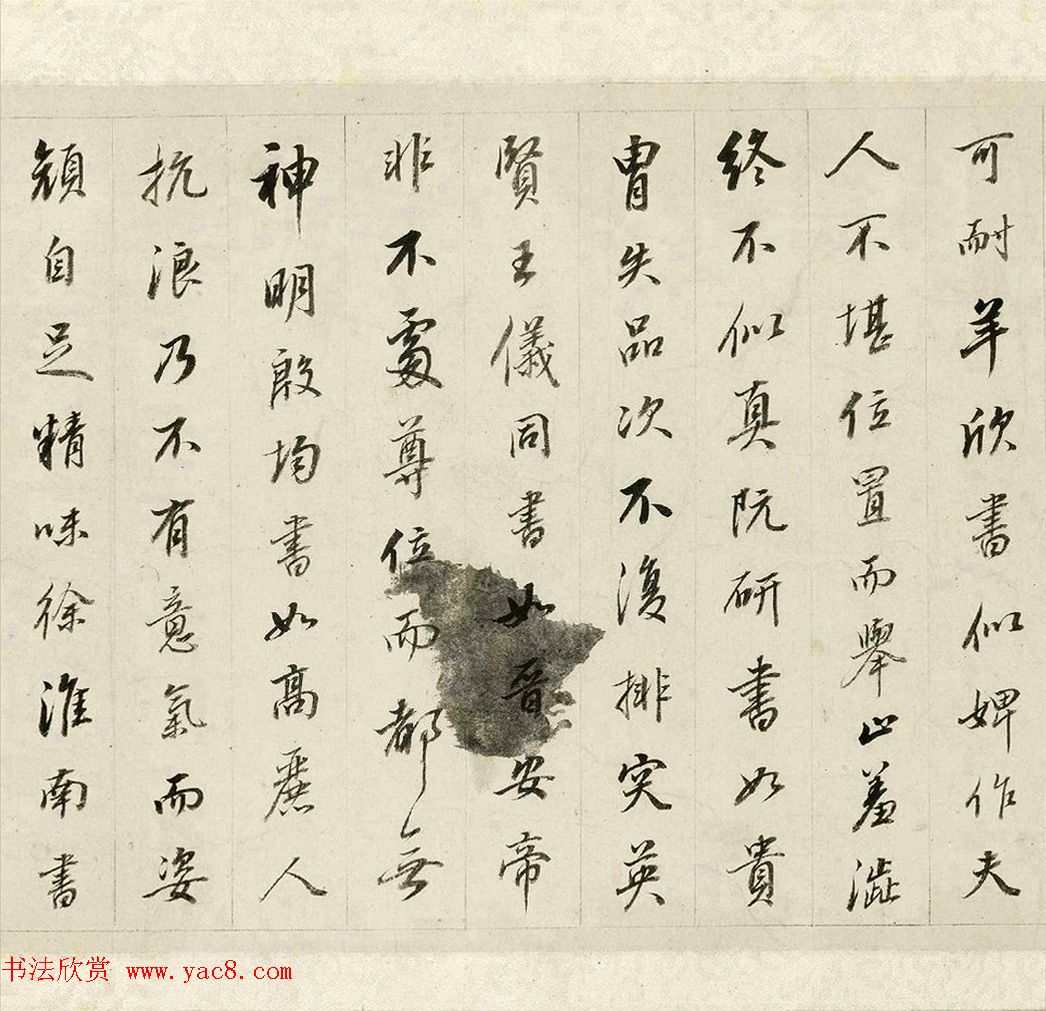 可耐羊欣書似婢作夫
人不堪位置而舉止羞澁
終不似真阮研書如貴
胄失品次不復排突英
賢王儀同書如晉安帝
非不處尊位而都無
神明殷均書如高麗人
抗浪乃不有意氣而姿
顔自足精味徐淮南書
书法欣赏 www.yac8.com